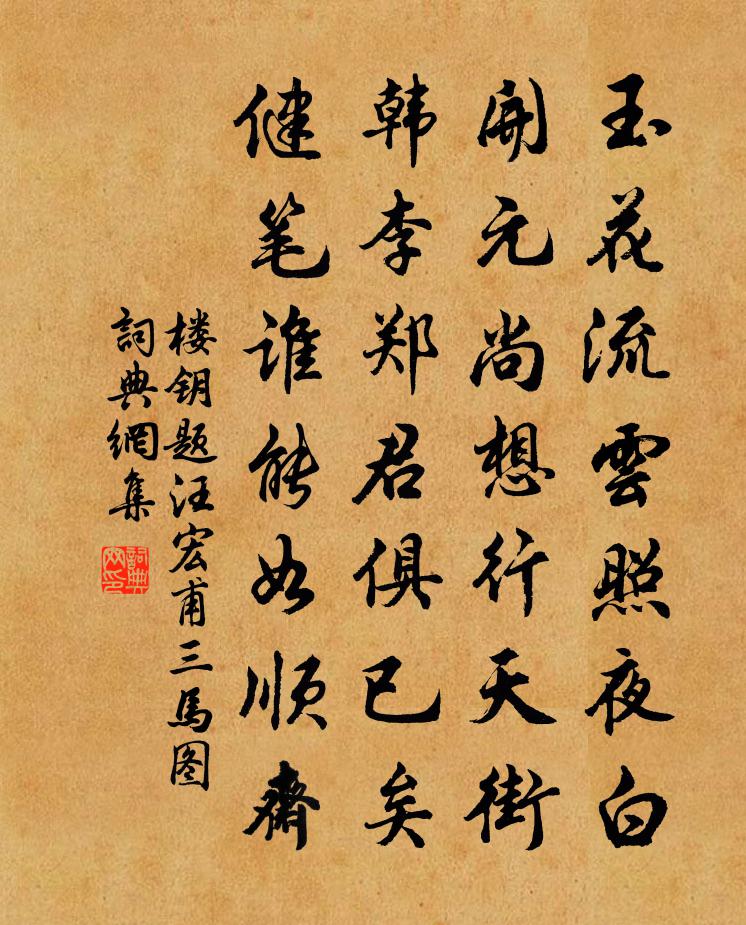 玉花流雲照夜白
開元尚想行天街
韩李郑君俱已矣
健笔谁能如顺齋
楼钥题汪宏甫三馬图
詞典網集
詞典網印